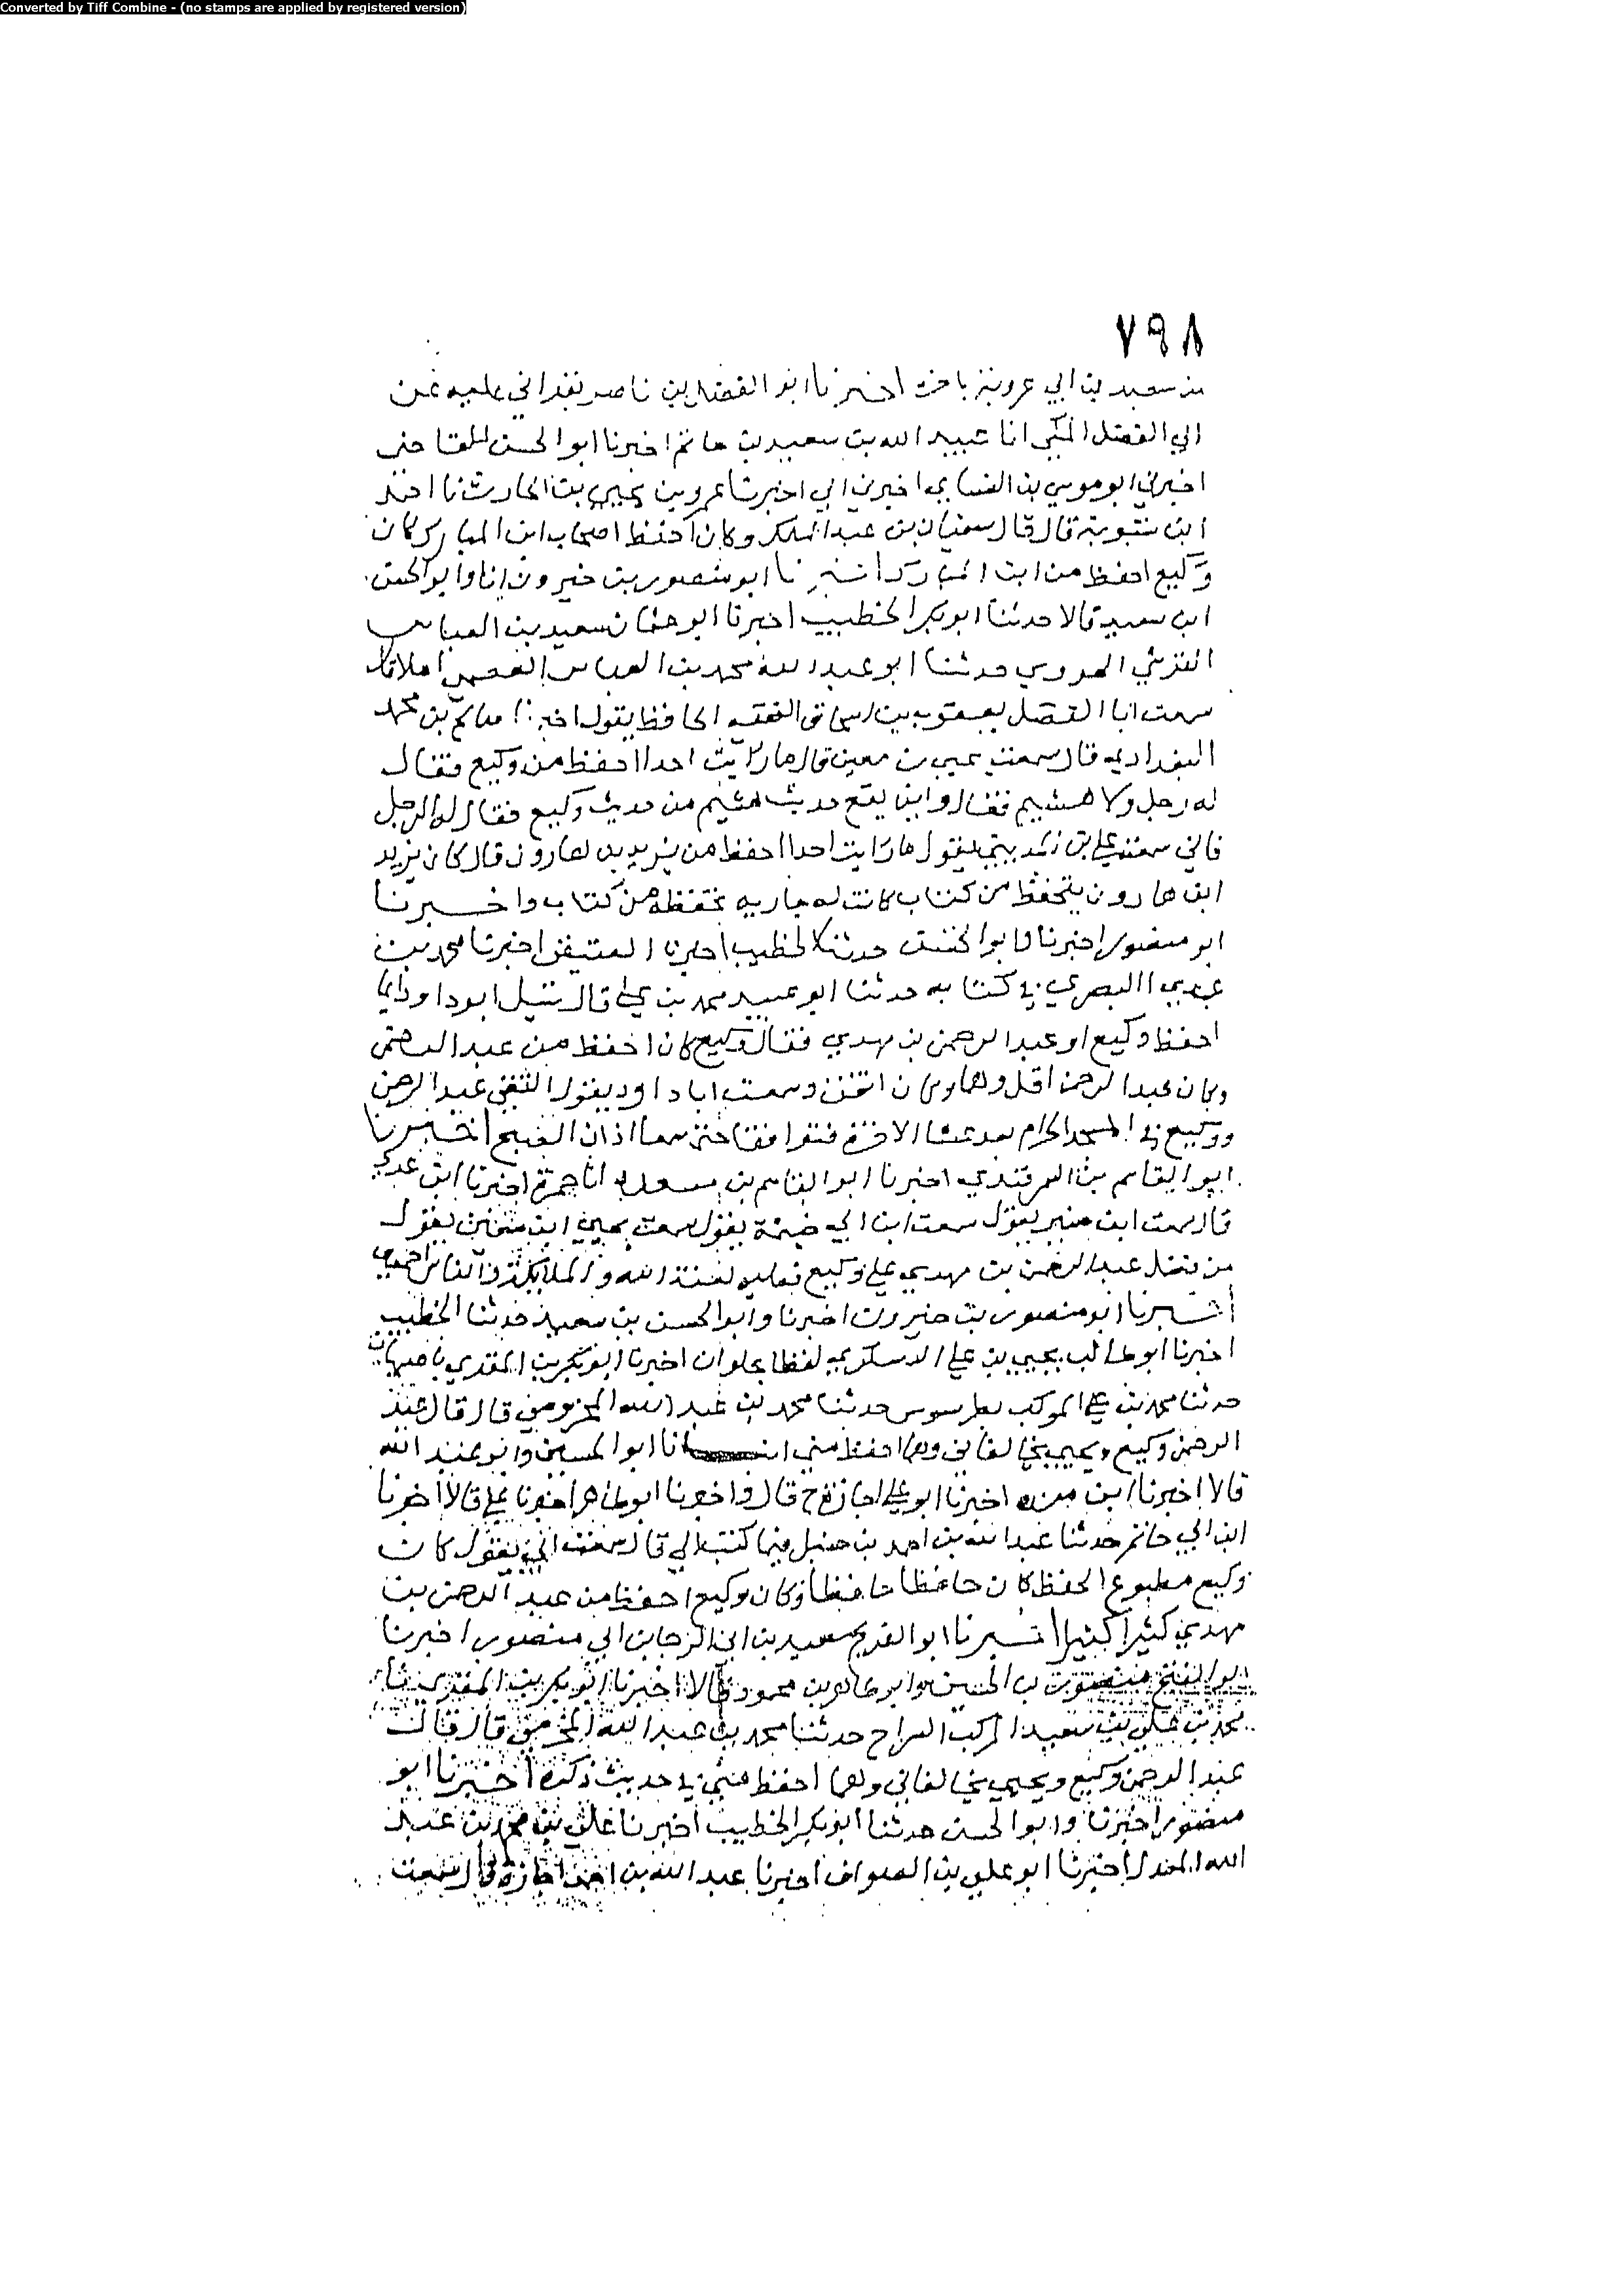 Converted by Tiff Combine - (no stamps are applied by registered version)
٧٩٨
سعيد بن ابي عروبة باخر اخبرنا ابو الفضل بن ناصر بقراتي عليه عن
ابي الفضل المكي انا عبيد الله بن سعيد بن حاتم اخبرنا ابو الحسن
اخبرني ابو موسى بن النساي اخبرني ابي اخبرنا عمرو بن يحيى بن الحارث نا احمد
ابن شبوية قال قال سفيان بن عبد الملك وكان احفظ اصحاب ابن المبارك كان
وكيع احفظ من ابن المبارك اخبرنا ابو منصور بن خيرون انا وابو الحسن
ابن سعيد قالا حدثنا ابو بكر الخطيب اخبرنا ابو عثمان سعيد بن العباس
القرشي الهروي حدثنا ابو عبد الله محمد بن العباس العصمي املا قال
سمعت ابا الفضل يعقوب بن اسحاق الفقيه الحافظ يقول اخبرنا صالح بن محمد
البغدادي قال سمعت يحيى بن معين قال ما رايت احدا احفظ من وكيع فقال
له رجل ولا هشيم فقال واين يقع حديث هشيم من حديث وكيع فقال له الرجل
فاني سمعت علي بن يقول ما رايت احدا احفظ من يزيد بن هارون قال كان يزيد
ابن هارون يتحفظ من كتاب كانت له جاريه تحفظه من كتاب واخبرنا
ابو منصور اخبرنا وابو الحسن حدثنا الخطيب اخبرنا العتيقي اخبرنا محمد بن
عدي البصري في كتابه حدثنا ابو عبيد محمد بن علي قال سئل ابو داود ايما
احفظ وكيع او عبد الرحمن بن مهدي فقال وكيع كان احفظ من عبد الرحمن
وكان عبد الرحمن اقل وهما وكان اتقن وسمعت ابا داود يقول التقى عبد الرحمن
ووكيع في المسجد الحرام بعد عشا الاخرة فتواقفا حتى سمعا اذان الصبح اخبرنا
ابو القاسم بن السمرقندي اخبرنا ابو القاسم بن مسعدة انا حمزة اخبرنا ابن عدي
قال سمعت ابن منير يقول سمعت ابن ابي خيثمة يقول سمعت يحيى ابن معين يقول
من فضل عبد الرحمن بن مهدي على وكيع فعليه لعنة الله والملايكة والناس اجمعين
اخبرنا ابو منصور بن خيرون اخبرنا وابو الحسن بن سعيد حدثنا الخطيب
اخبرنا ابو طالب يحيى بن علي الدسكري لفظا بحلوان اخبرنا ابو بكر بن المقري باصبهان
حدثنا محمد بن علي المركب بطرسوس حدثنا محمد بن عبد الله المخزومي قال قال عبد
الرحمن وكيع ويحيى يخالفاني وهما احفظ مني انا ابو الحسين وابو عبد الله
قالا اخبرنا ابن منده اخبرنا ابو علي اجازة ح قال واخبرنا ابو طاهر اخبرنا علي قالا اخبرنا
ابن ابي حاتم حدثنا عبد الله بن احمد بن حنبل فيما كتب الي قال سمعت ابي يقول كان
وكيع مطبوع الحفظ كان حافظا حافظا وكان وكيع احفظ من عبد الرحمن بن
مهدي كثيرا كثيرا اخبرنا ابو الفرج سعيد بن ابي الرجا بن ابي منصور اخبرنا
ابو الفتح منصور بن الحسين وابو طاهر بن محمود قالا اخبرنا ابو بكر بن المقري نا
محمد بن علي بن سعيد المركب السراج حدثنا محمد بن عبد الله المخرمي قال قال
عبد الرحمن وكيع ويحيى يخالفاني وهما احفظ مني في حديث ذكره اخبرنا ابو
منصور اخبرنا وابو الحسن حدثنا ابو بكر الخطيب اخبرنا علي بن محمد بن عبد
الله المعدل اخبرنا ابو علي بن الصواف اخبرنا عبد الله بن احمد اجازة قال سمعت